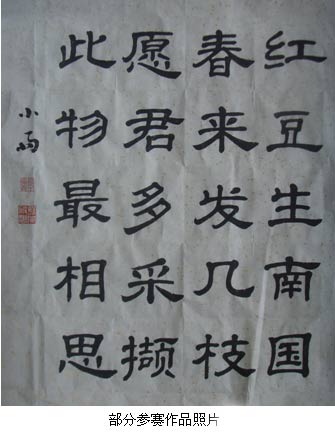 红豆生南国
春来发几枝
愿君多采撷
此物最相思
小
部分参赛作品照片